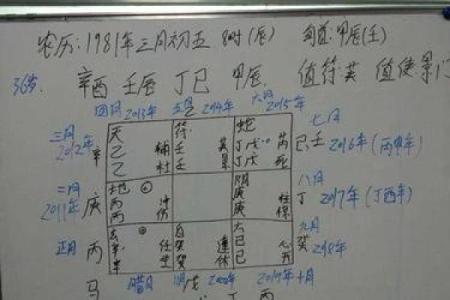 农历:1981年三月初五 8时(辰) 旬首:甲辰(壬)
36岁 辛酉 壬辰 丁巳 甲辰 值符英 值使景门
四月 2013年 五月 2014年 六月 2015年
三月 2012年 辛
天 乙 乙 辅 杜
符 壬 壬 英 景
蛇 丁戊 丁戊 芮 死
七月 己壬 2016年(丙申年)
二月 2011年 庚
地 丙 丙 冲 伤
阴 庚 庚 柱 惊
八月 丁 2017年(丁酉年)
正月 丙
辛 辛 任 生
癸 癸 蓬 休
六 己 己 心 开
九月 癸 2018年
马 腊月 戊 2019年十月